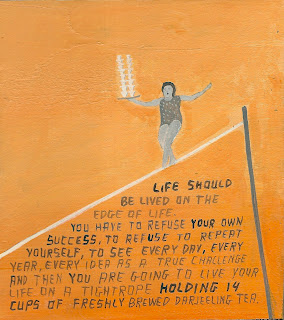 LIFE SHOULD
BE LIVED ON THE
EDGE OF LIFE.
YOU HAVE TO REFUSE YOUR OWN
SUCCESS, TO REFUSE TO REPEAT
YOURSELF, TO SEE EVERY DAY, EVERY
YEAR, EVERY IDEA AS A TRUE CHALLENGE
AND THEN YOU ARE GOING TO LIVE YOUR
LIFE ON A TIGHTROPE HOLDING 14
CUPS OF FRESHLY BREWED DARJEELING TEA.